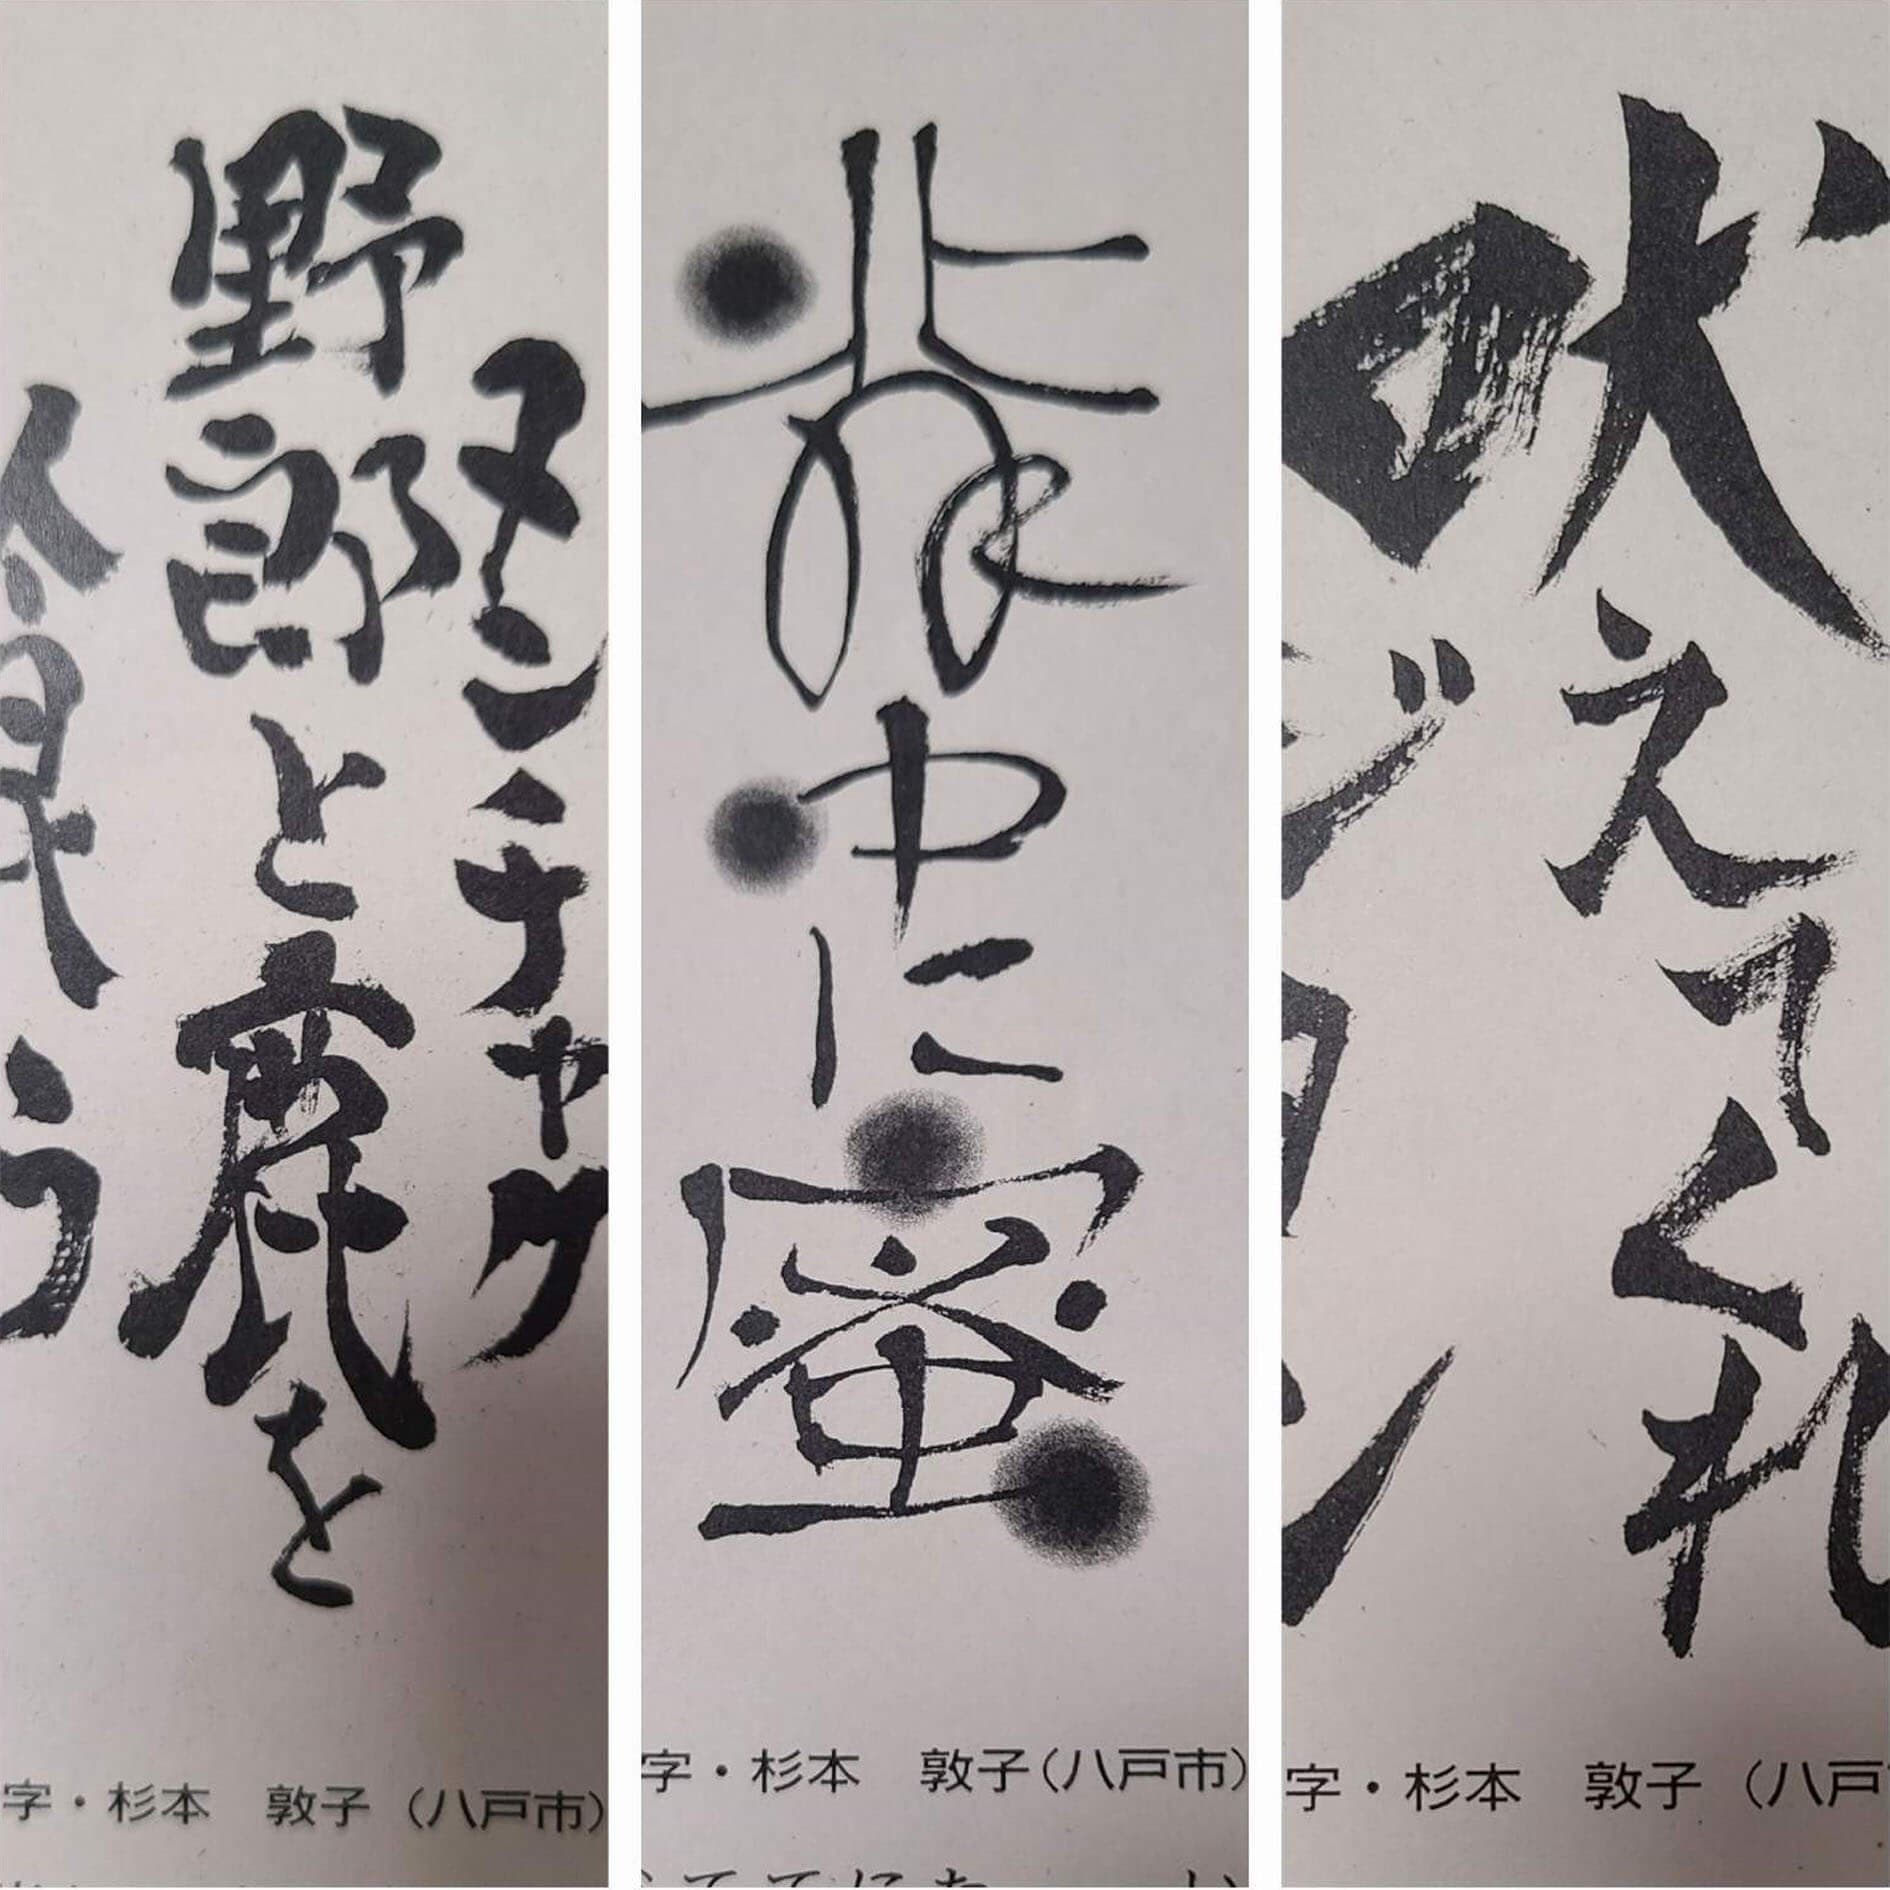 ヌンチャク
野郎と鹿を
食う
字・杉本　敦子（八戸市）
背中に蜜
字・杉本　敦子（八戸市）
吠えてくれ
ジョン
字・杉本　敦子（八戸